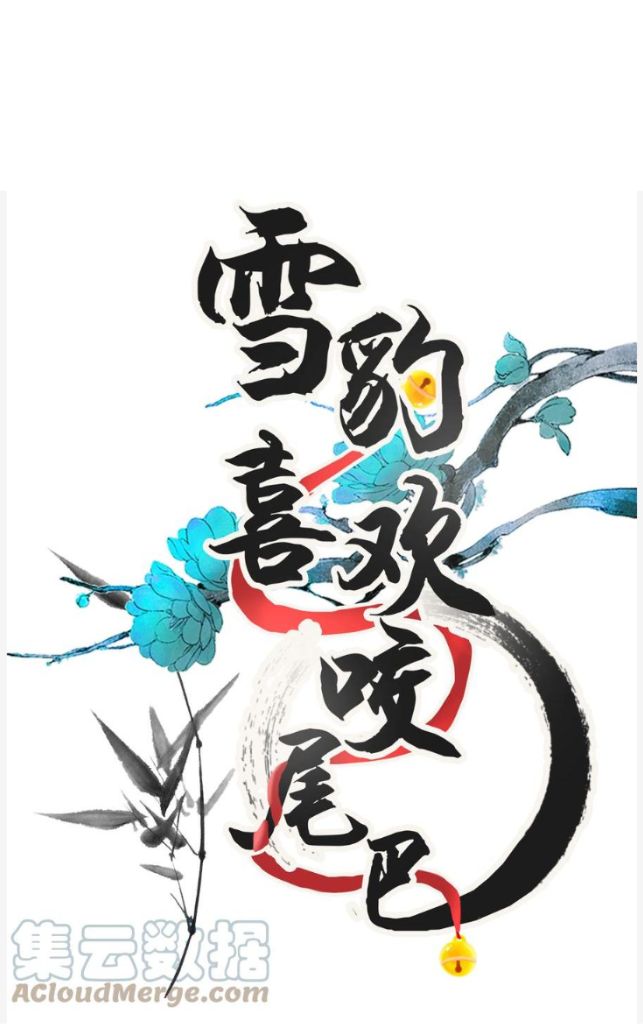 雪豹
喜欢
咬
尾巴
集云数据
ACloudMerge.com